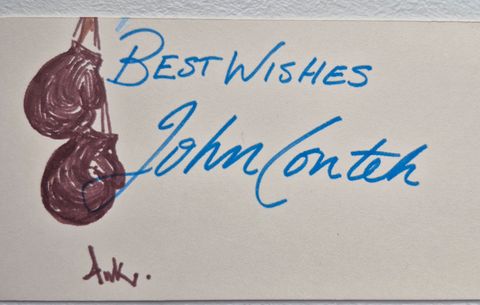 Best Wishes
John Conteh